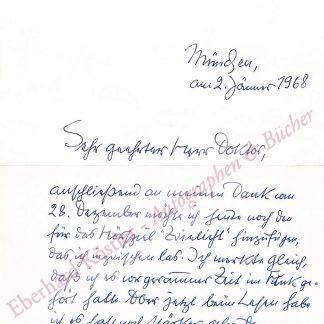 München,
am 2. Jänner 1968
Sehr geehrter Herr Doktor,
anschließend an meinen Dank vom
28. Dezember möchte ich heute noch den
für das Hörspiel "Zwielicht" hinzufügen,
das ich inzwischen las. Ich merkte gleich,
daß ich es vor geraumer Zeit im Funk ge-
hört hatte. Aber jetzt beim Lesen habe
ich es noch stärker
Eberhard Köstler Autographen & Bücher